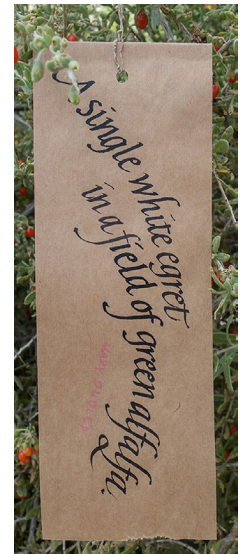 A single white egret
in a field of green alfalfa.